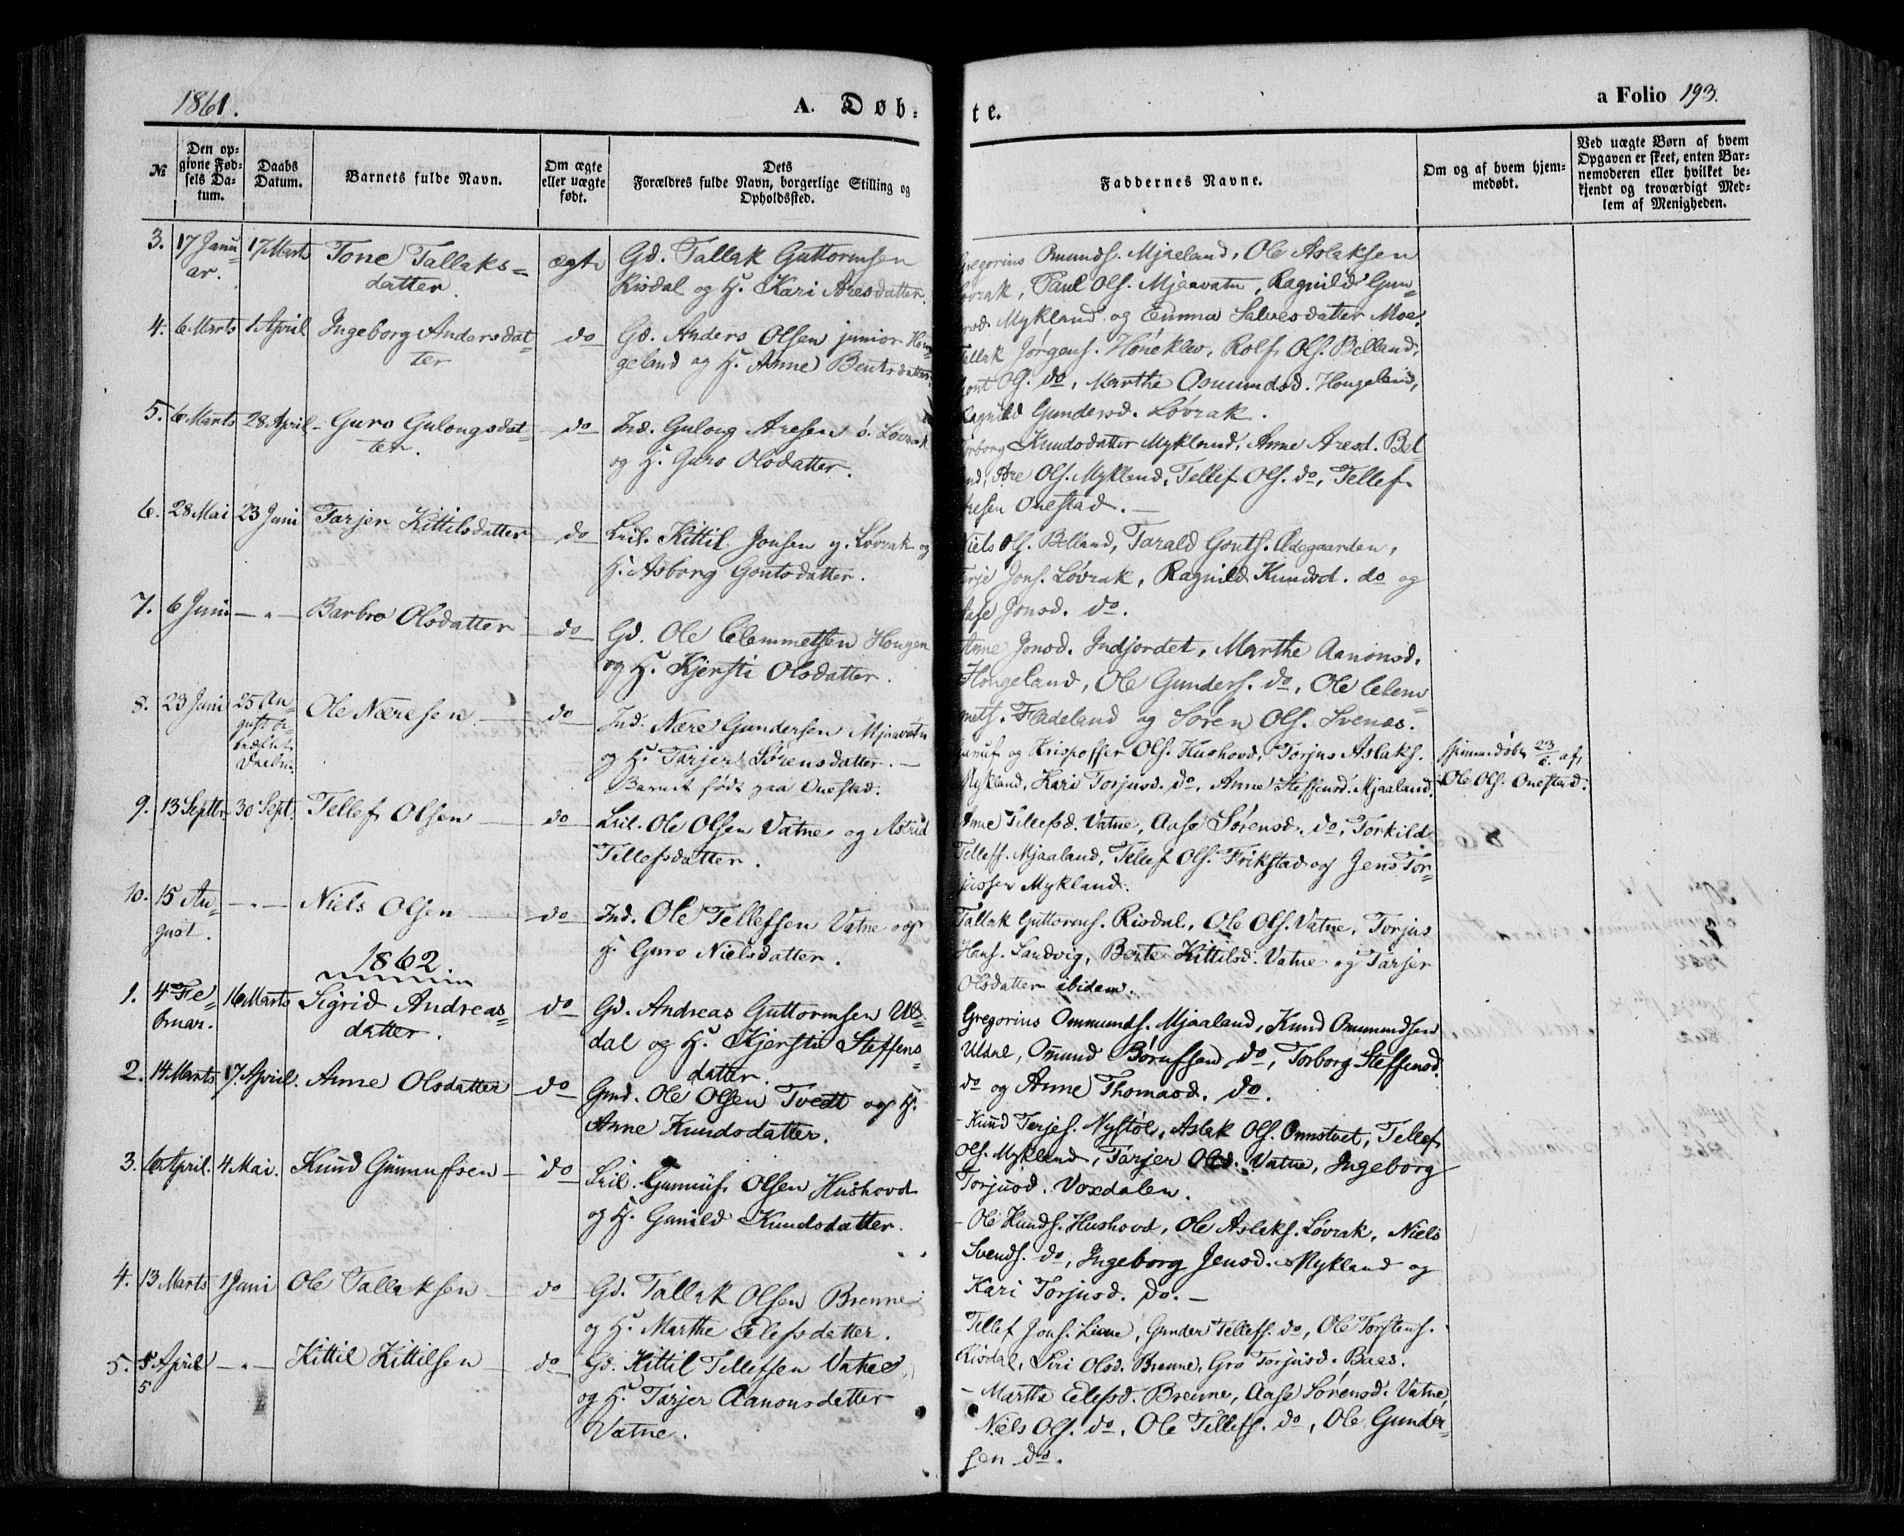 1861.
A. Døb-
te.
a Folio 193.
№
Den op-
givne Fød-
sels Da-
tum.
Daabs
Datum.
Barnets fulde Navn.
Om ægte
eller uægte
født.
Dets
Forældres fulde Navn, borgerlige Stilling og
Opholdssted.
Faddernes Navne.
Om og af hvem hjem-
medøbt.
Ved uægte Børn af hvem
Opgaven er skeet, enten Bar-
nemoderen eller hvilket be-
kjendt og troværdigt Med-
lem af Menigheden.
3. 17 Janu- 17 Marts Tone Tallaks= ægte Gd. Tallak Guttormsen
ar. datter. Risdal og H. Kari Aresdatter.
Gregorius Omunds. Mjaeland, Ole Aslaksen
Løvrak, Paul Ols. Mjaavatn, Ragnild Gun-
Mykland og Emma Salvesdatter Moe.
4. 6 Marts 1 April Ingeborg Andersdat- do Gd. Anders Olsen junior Hou-
ter geland og H. Anne Bentsdatter.
Tallak Jørgens. Høneklev, Rolf Ols. Belland,
Ols. do, Marthe Osmundsd. Hougeland,
Ragnild Gundersd. Løvrak.
5. 6 Marts 28 April Guro Gulougsdat- do Ind. Guloug Aresen ø. Løvrak
ter. og H. Guro Olsdatter.
Torborg Knudsdatter Mykland, Anne Aresd. Bel-
land, Are Ols. Mykland, Tellef Ols. do, Tellef
Aresen Onestad.
6. 28 Mai 23 Juni Tarjer Kittilsdatter do Leil. Kittil Jonsen y. Løvrak og
H. Asborg Gontsdatter.
Niels Ols. Belland, Tarald Gonts. Ødegaarden,
Terje Jons. Løvrak, Ragnild Knudsd. do og
Aase Jonsd. do.
7. 6 Juni — " — Barbro Olsdatter do Gd. Ole Clemmetsen Hougen
og H. Kjersti Olsdatter.
Anne Jonsd. Indjordet, Marthe Aanonsd.
Hougeland, Ole Gunders. do, Ole Clem-
mets. Fladeland og Søren Ols. Svenas.
8. 23 Juni 25 Au- Ole Næresen do Ind. Nære Gundersen Mjaavatn
gust
og H. Tarjer Sørensdatter.
Barnet født paa Onestad.
Gunuf og Krispoffer Ols. Hushovd, Torjus Aslaks.
Mykland, Kari Torjusd. do, Anne Steffensd. Mjaaland.
Hjemmedøbt 23/6 af
Ole Ols. Onestad.
9. 13 Septbr 30 Sept. Tellef Olsen do Leil. Ole Olsen Vatne og Astrid
Tellefsdatter.
Anne Tellefsd. Vatne, Aase Sørensd. do, Torkild
Tellefs. Mjaaland, Tellef Ols. Frikstad og Jens Tor-
jussen Mykland.
10. 15 Au- — " — Niels Olsen do Ind. Ole Tellefsen Vatne og
gust. H. Guro Nielsdatter.
Tallak Guttorms. Risdal, Ole Ols. Vatne, Torjus
Hans. Landvig, Berte Kittilsd. Vatne og Tarjer
Olsdatter ibidem.
1862.
1. 4 Fe- 16 Marts Sigrid Andreas- do Gd. Andreas Guttormsen Ul-
bruar. datter. dal og H. Kjersti Steffens-
datter.
Gregorius Ommunds. Mjaaland, Knud Omundsen
Uldal, Omund Børufsen do, Torborg Steffensd.
do og Anne Thomasd. do.
2. 14 Marts 17 April Anne Olsdatter do Gmd. Ole Olsen Tvedt og H.
Anne Knudsdatter.
Knud Terjes. Nystøl, Aslak Ols. Onnstvet, Tellef
Ols. Mykland, Tarjer Olsd. Vatne, Ingeborg
Torjusd. Voxdalen.
3. 6 April. 4 Mai. Knud Gunnufsen do Leil. Gunnuf Olsen Hushovd
og H. Gunild Knudsdatter.
Ole Knuds. Hushovd, Ole Aslaks. Løvrak, Niels
Svends. do, Ingeborg Jensd. Mykland og
Kari Torjusd. do.
4. 13 Marts 1 Juni Ole Tallaksen do Gd. Tallak Olsen Brenne
og H. Marthe Elefsdatter.
Tellef Jons. Lien, Gunder Tellefs. do, Ole Torstens.
Risdal, Siri Olsd. Brenne, Gro Torjusd. Baas.
5. 5 April — " — Kittil Kittilsen do Gd. Kittil Tellefsen Vatne,
5
og H. Tarjer Aanonsdatter
Vatne.
Marthe Elefsd. Brenne, Aase Sørensd. Vatne,
Niels Ols. do, Ole Tellefs. do, Ole Gunder-
sen do.